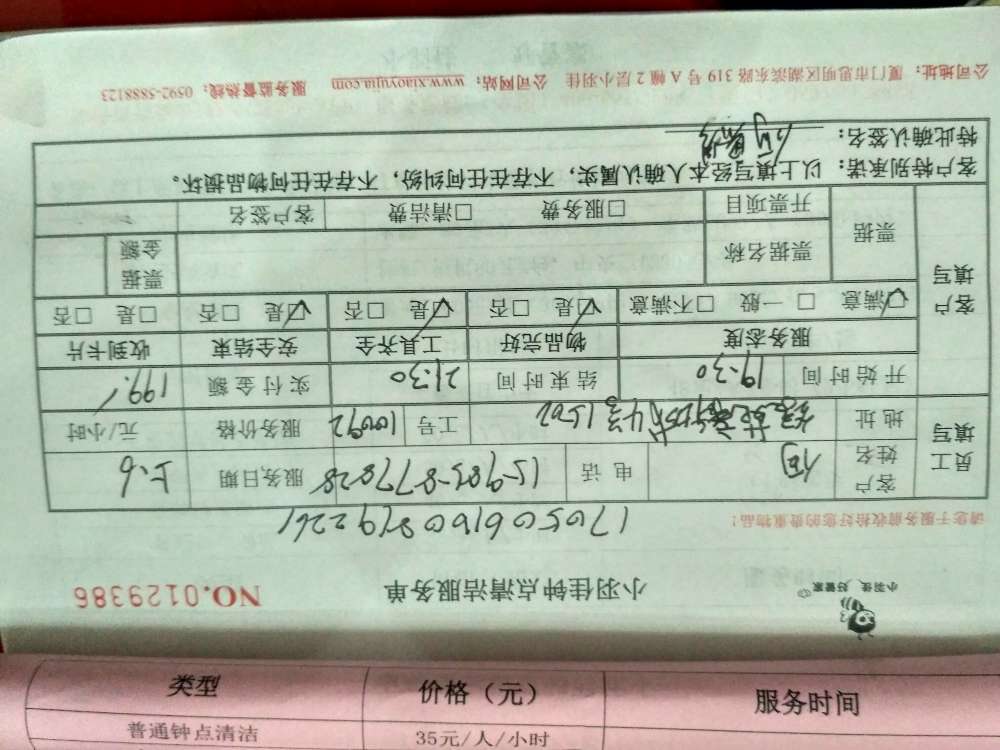 小羽佳 好管家
小羽佳钟点清洁服务单 NO.0129386
请您于服务前收拾好您的贵重物品！
员工填写 客户姓名 何 电话 服务日期 5.6
地址 工号 10092 服务价格 元/小时
开始时间 19:30 结束时间 21:30 实付金额 199.
客户填写 服务态度 物品完好 工具齐全 安全结束 收到卡片
☑满意 □一般 □不满意 ☑是 □否 ☑是 □否 ☑是 □否 □是 □否
票据 票据名称 票据金额
开票项目 □服务费 □清洁费 客户签名
客户特别承诺：以上填写经本人确认属实，不存在任何纠纷，不存在任何物品损坏。
特此确认签名：
公司地址：厦门市思明区湖滨东路319号A幢2层小羽佳 公司网站：www.xiaoyujia.com 服务监督热线：0592-5888123
类型 价格（元） 服务时间
普通钟点清洁 35元/人/小时